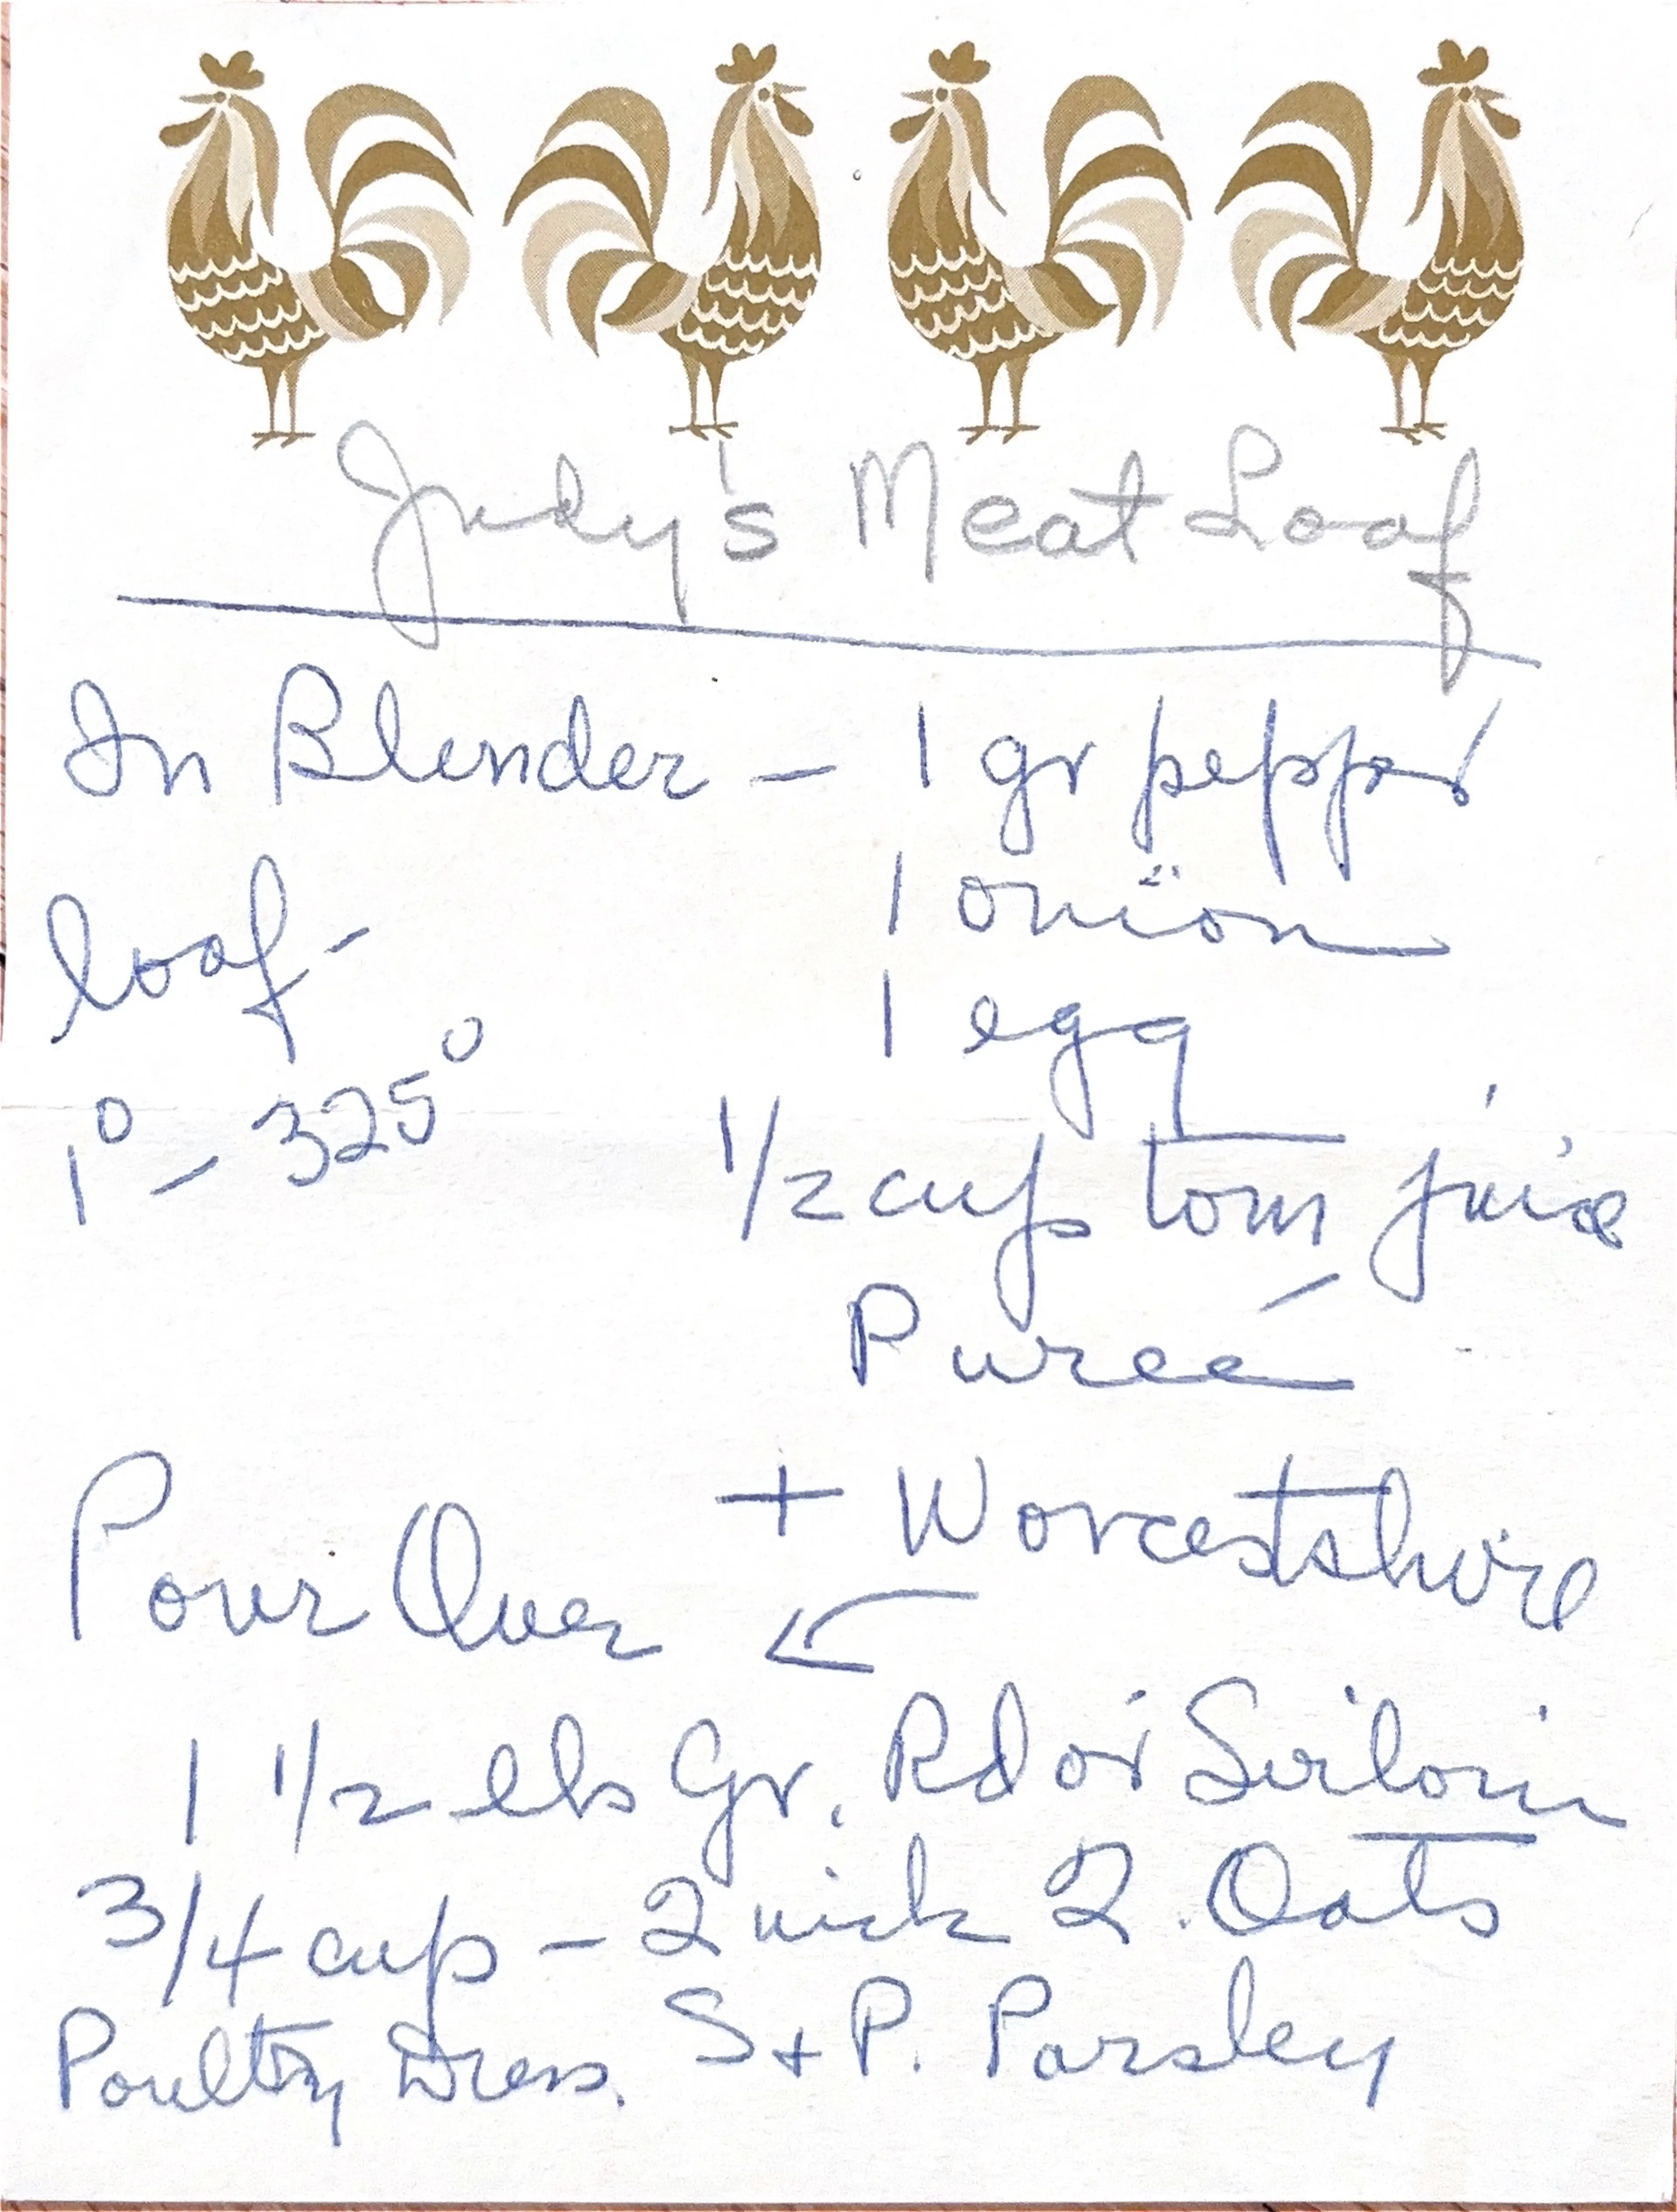 Judy's Meat Loaf
In Blender - 1 gr pepper
1 onion
loaf -
1 egg
1° - 325°
1/2 cup tom juice
Pureé
+ Worcestshire
Pour Over
1 1/2 lbs Gr. Rd or Sirloin
3/4 cup - Quick Q. Oats
Poultry Dress. S + P. Parsley